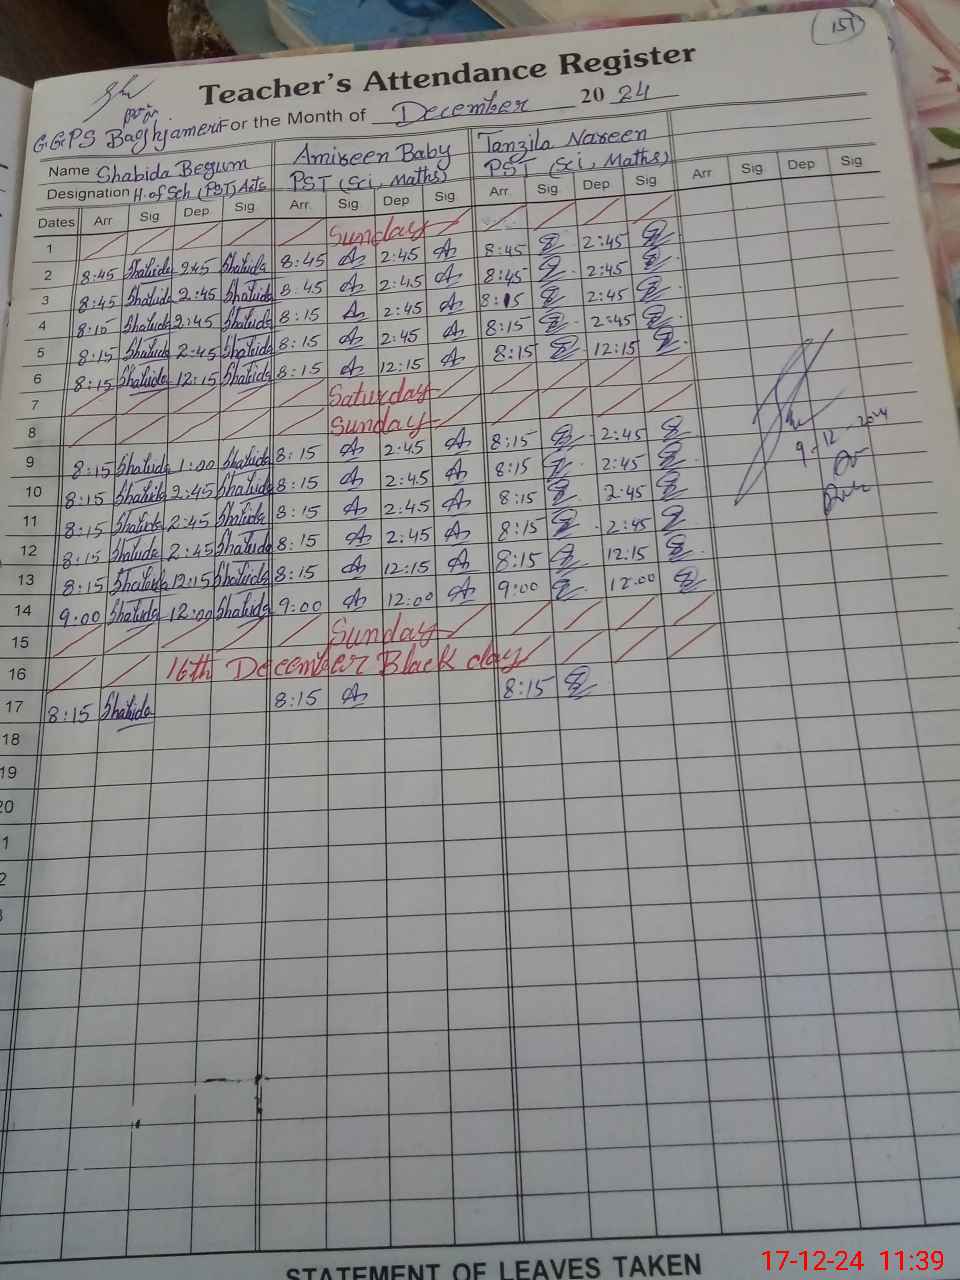 151
Teacher's Attendance Register
G.G.P.S Baghjameri For the Month of December 2024
Name Shahida Begum Amireen Baby Tanzila Nareen
Designation H.of Sch (PST) Arts PST (Sci, Maths) PST (Sci, Maths)
Dates Arr Sig Dep Sig Arr. Sig Dep Sig Arr. Sig Dep Sig Arr Sig Dep Sig
1 Sunday
2 8:45 Shahida 2:45 Shahida 8:45 A 2:45 A 8:45 2:45
3 8:45 Shahida 2:45 Shahida 8:45 A 2:45 A 8:45 2:45
4 8:15 Shahida 2:45 Shahida 8:15 A 2:45 A 8:15 2:45
5 8:15 Shahida 2:45 Shahida 8:15 A 2:45 A 8:15 2:45
6 8:15 Shahida 12:15 Shahida 8:15 A 12:15 A 8:15 12:15
7 Saturday
8 Sunday
9 8:15 Shahida 1:00 Shahida 8:15 A 2:45 A 8:15 2:45
10 8:15 Shahida 2:45 Shahida 8:15 A 2:45 A 8:15 2:45
11 8:15 Shahida 2:45 Shahida 8:15 A 2:45 A 8:15 2:45
12 8:15 Shahida 2:45 Shahida 8:15 A 2:45 A 8:15 2:45
13 8:15 Shahida 12:15 Shahida 8:15 A 12:15 A 8:15 12:15
14 9:00 Shahida 12:00 Shahida 9:00 A 12:00 A 9:00 12:00
15 Sunday
16 16th December Black day
17 8:15 Shahida 8:15 A 8:15
18
19
20
1
2
3
9-12-2024
STATEMENT OF LEAVES TAKEN
17-12-24 11:39